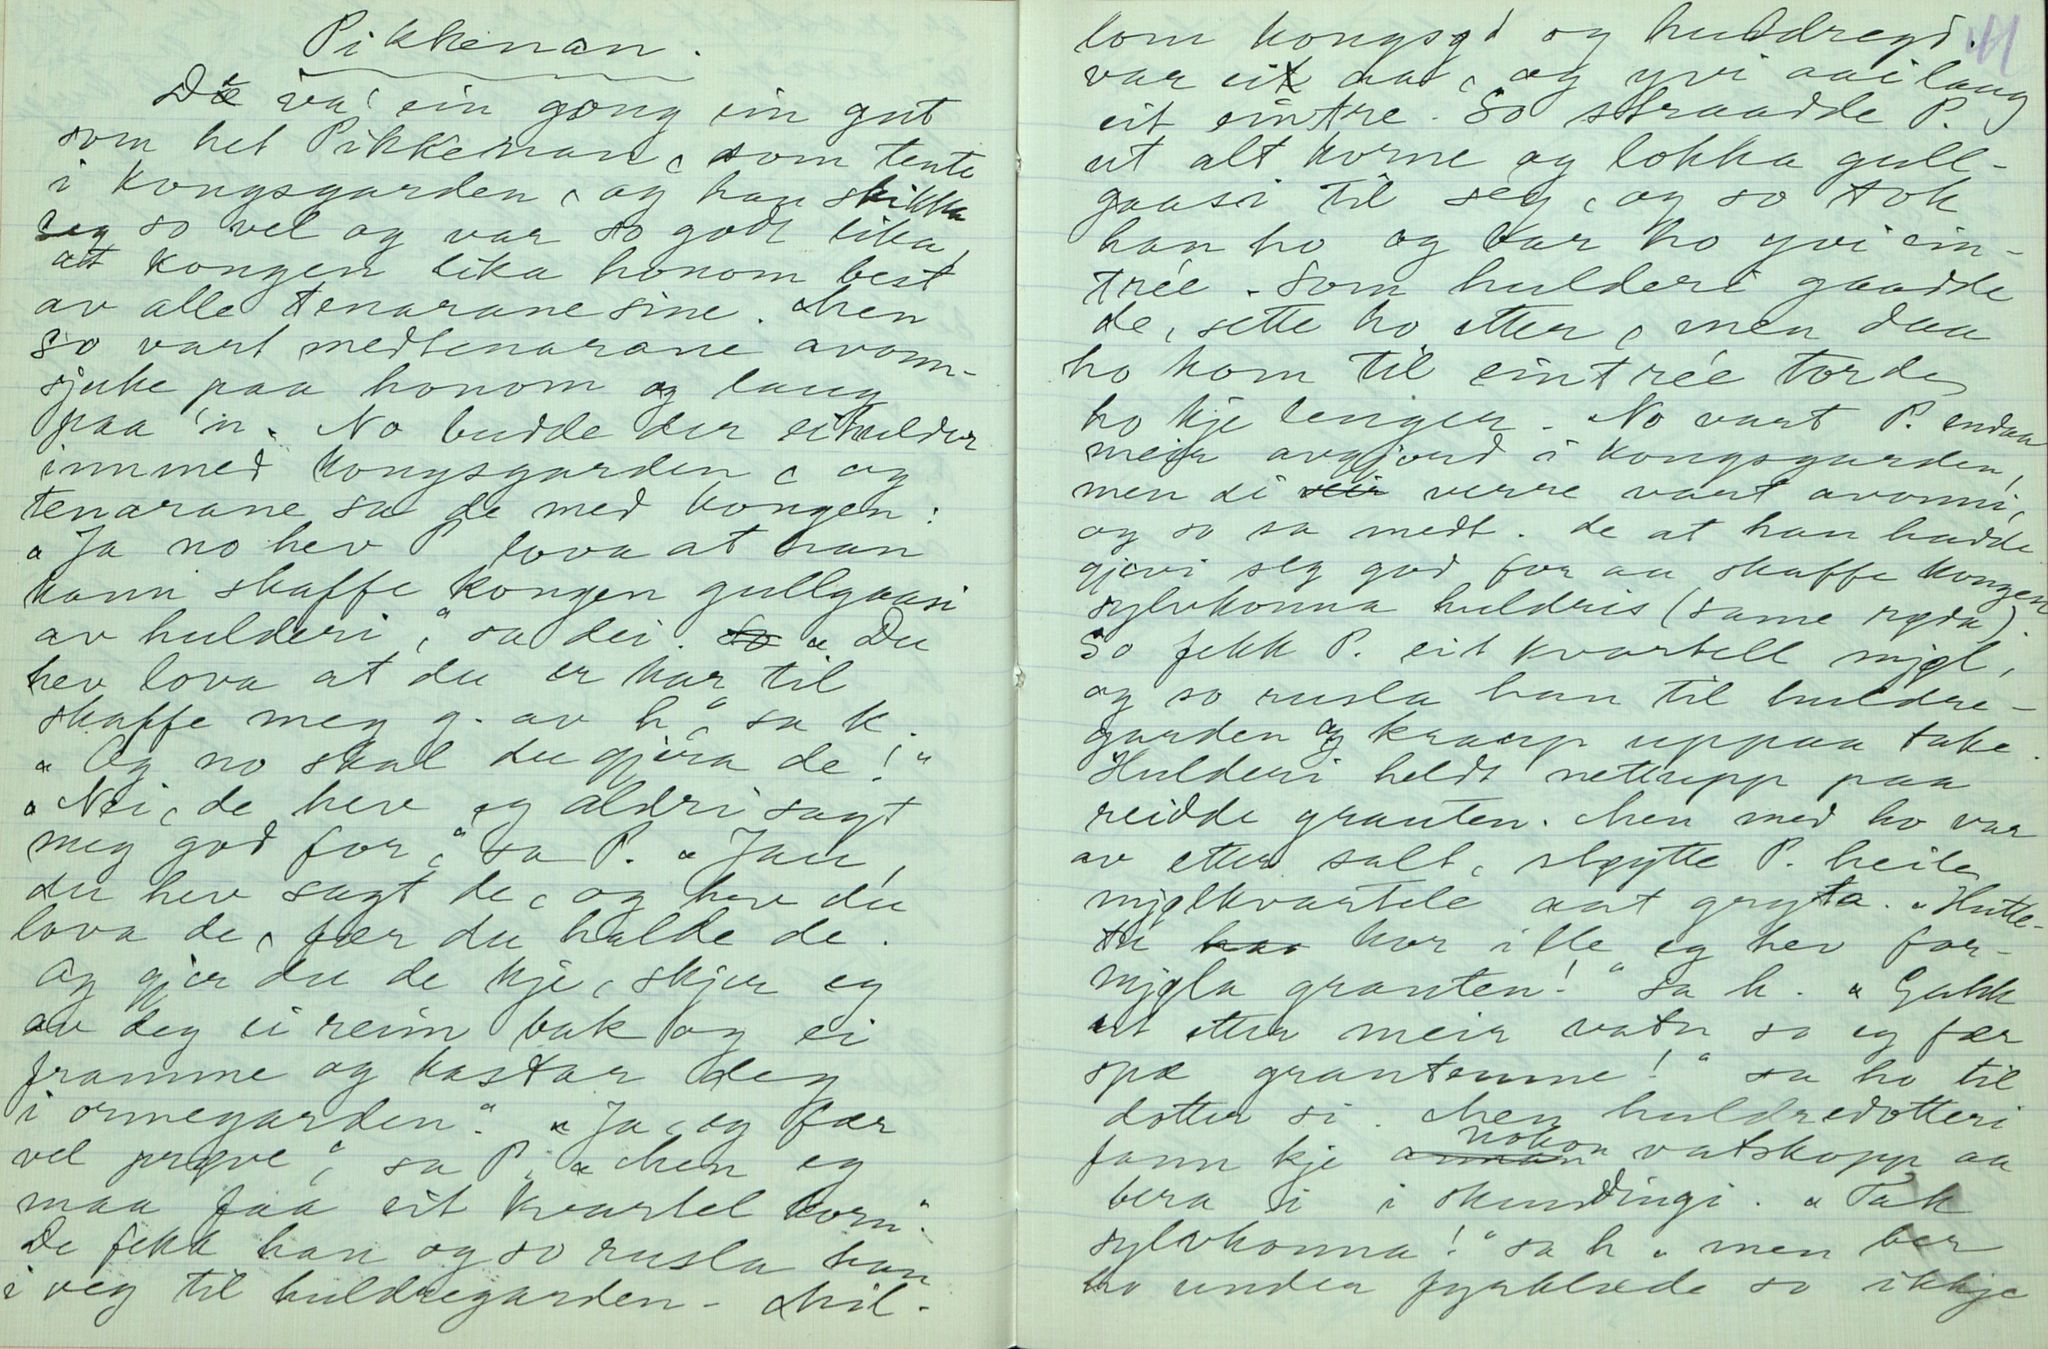 Pikkenan.
De va' ein gong ein gut
som het Pikkenan, som tente
i kongsgarden, og han skikka
seg so vel og var so godt lika,
att kongen lika honom best
av alle tenarane sine. Men
so vart medtenarane avonn-
sjuke paa honom og laug
paa 'n. No budde der ei hulder
innmed kongsgarden, og
tenarane sa de med kongen:
"Ja no hev P lova at han
kann skaffe kongen gullgaasi
av hulderi," sa dei. so "Du
hev lova at du er kar til
skaffe meg g. av h", sa k.
"Og no skal du gjera de!"
"Nei, de hev eg aldri sagt
meg god for," sa P. "Jau,
du hev sagt de, og hev du
lova de, fær du halde de.
Og gjer du de kje, skjer eg
av deg ei reim bak og ei
framme og kastar deg
i ormegarden." "Ja, eg fær
vel prøve", sa P, "Men eg
maa faa eit kvartel korn".
De fekk han og so rusla han
i veg til huldregarden. Mil-
11
lom kongsgd og huldregd.
var eit aa, og yvi aai laug
eit eintre. So straadde P.
ut alt korne og lokka gull-
gaasi til seg, og so tok
han ho og bar ho yvi ein-
trée. Som hulderi gaadde
de, sette ho etter, men daa
ho kom til eintrée torde
ho kje lenger. No vart P. endaa
meir avgjord i kongsgarden,
men di meir verre vart avonni,
og so sa medt. de at han hadde
gjevi seg god for aa skaffe kongen
sylvkonna huldris (same rgda).
So fekk P. eit kvartell mjøl,
og so rusla han til huldre-
garden og kraup uppaa take.
Hulderi heldt nettupp paa
reidde grauten. Men med ho var
av etter salt, støytte P. heile
mjølkvartele aat gryta. "Hutte-
tu kor kor ille eg hev for-
mjøla grauten!" sa h. "Gakk
ut etter meir vatn so eg fær
spæ grautenne!" sa ho til
dotter si. Men huldredotteri
fann kje annan nokon vatskopp aa
bera i i skundingi. "Tak
sylvkonna!" sa h "men ber
ho under fyrklæde so ikkje